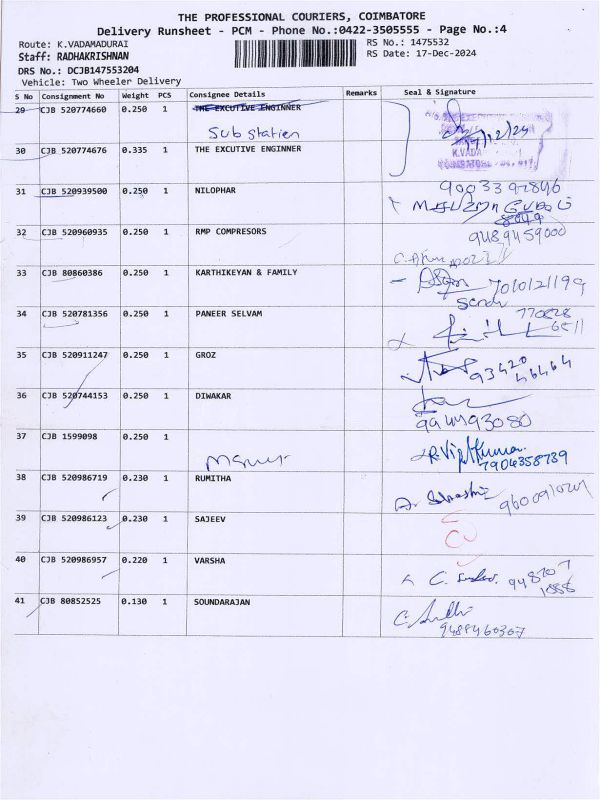 THE PROFESSIONAL COURIERS, COIMBATORE
Delivery Runsheet - PCM - Phone No.:0422-3505555 - Page No.:4
Route: K.VADAMADURAI RS No.: 1475532
Staff: RADHAKRISHNAN RS Date: 17-Dec-2024
DRS No.: DCJB147553204
Vehicle: Two Wheeler Delivery
S No Consignment No Weight PCS Consignee Details Remarks Seal & Signature
29 CJB 520774660 0.250 1 THE EXCUTIVE ENGINNER
Substation
30 CJB 520774676 0.335 1 THE EXCUTIVE ENGINNER
K.VADA
31 CJB 520939500 0.250 1 NILOPHAR
32 CJB 520960935 0.250 1 RMP COMPRESORS
9489459000
33 CJB 80860386 0.250 1 KARTHIKEYAN & FAMILY
7010121199
34 CJB 520781356 0.250 1 PANEER SELVAM
770828
6511
35 CJB 520911247 0.250 1 GROZ
93420
46464
36 CJB 520744153 0.250 1 DIWAKAR
9944493080
37 CJB 1599098 0.250 1
7904358739
38 CJB 520986719 0.230 1 RUMITHA
39 CJB 520986123 0.230 1 SAJEEV
40 CJB 520986957 0.220 1 VARSHA
41 CJB 80852525 0.130 1 SOUNDARAJAN
9489460307